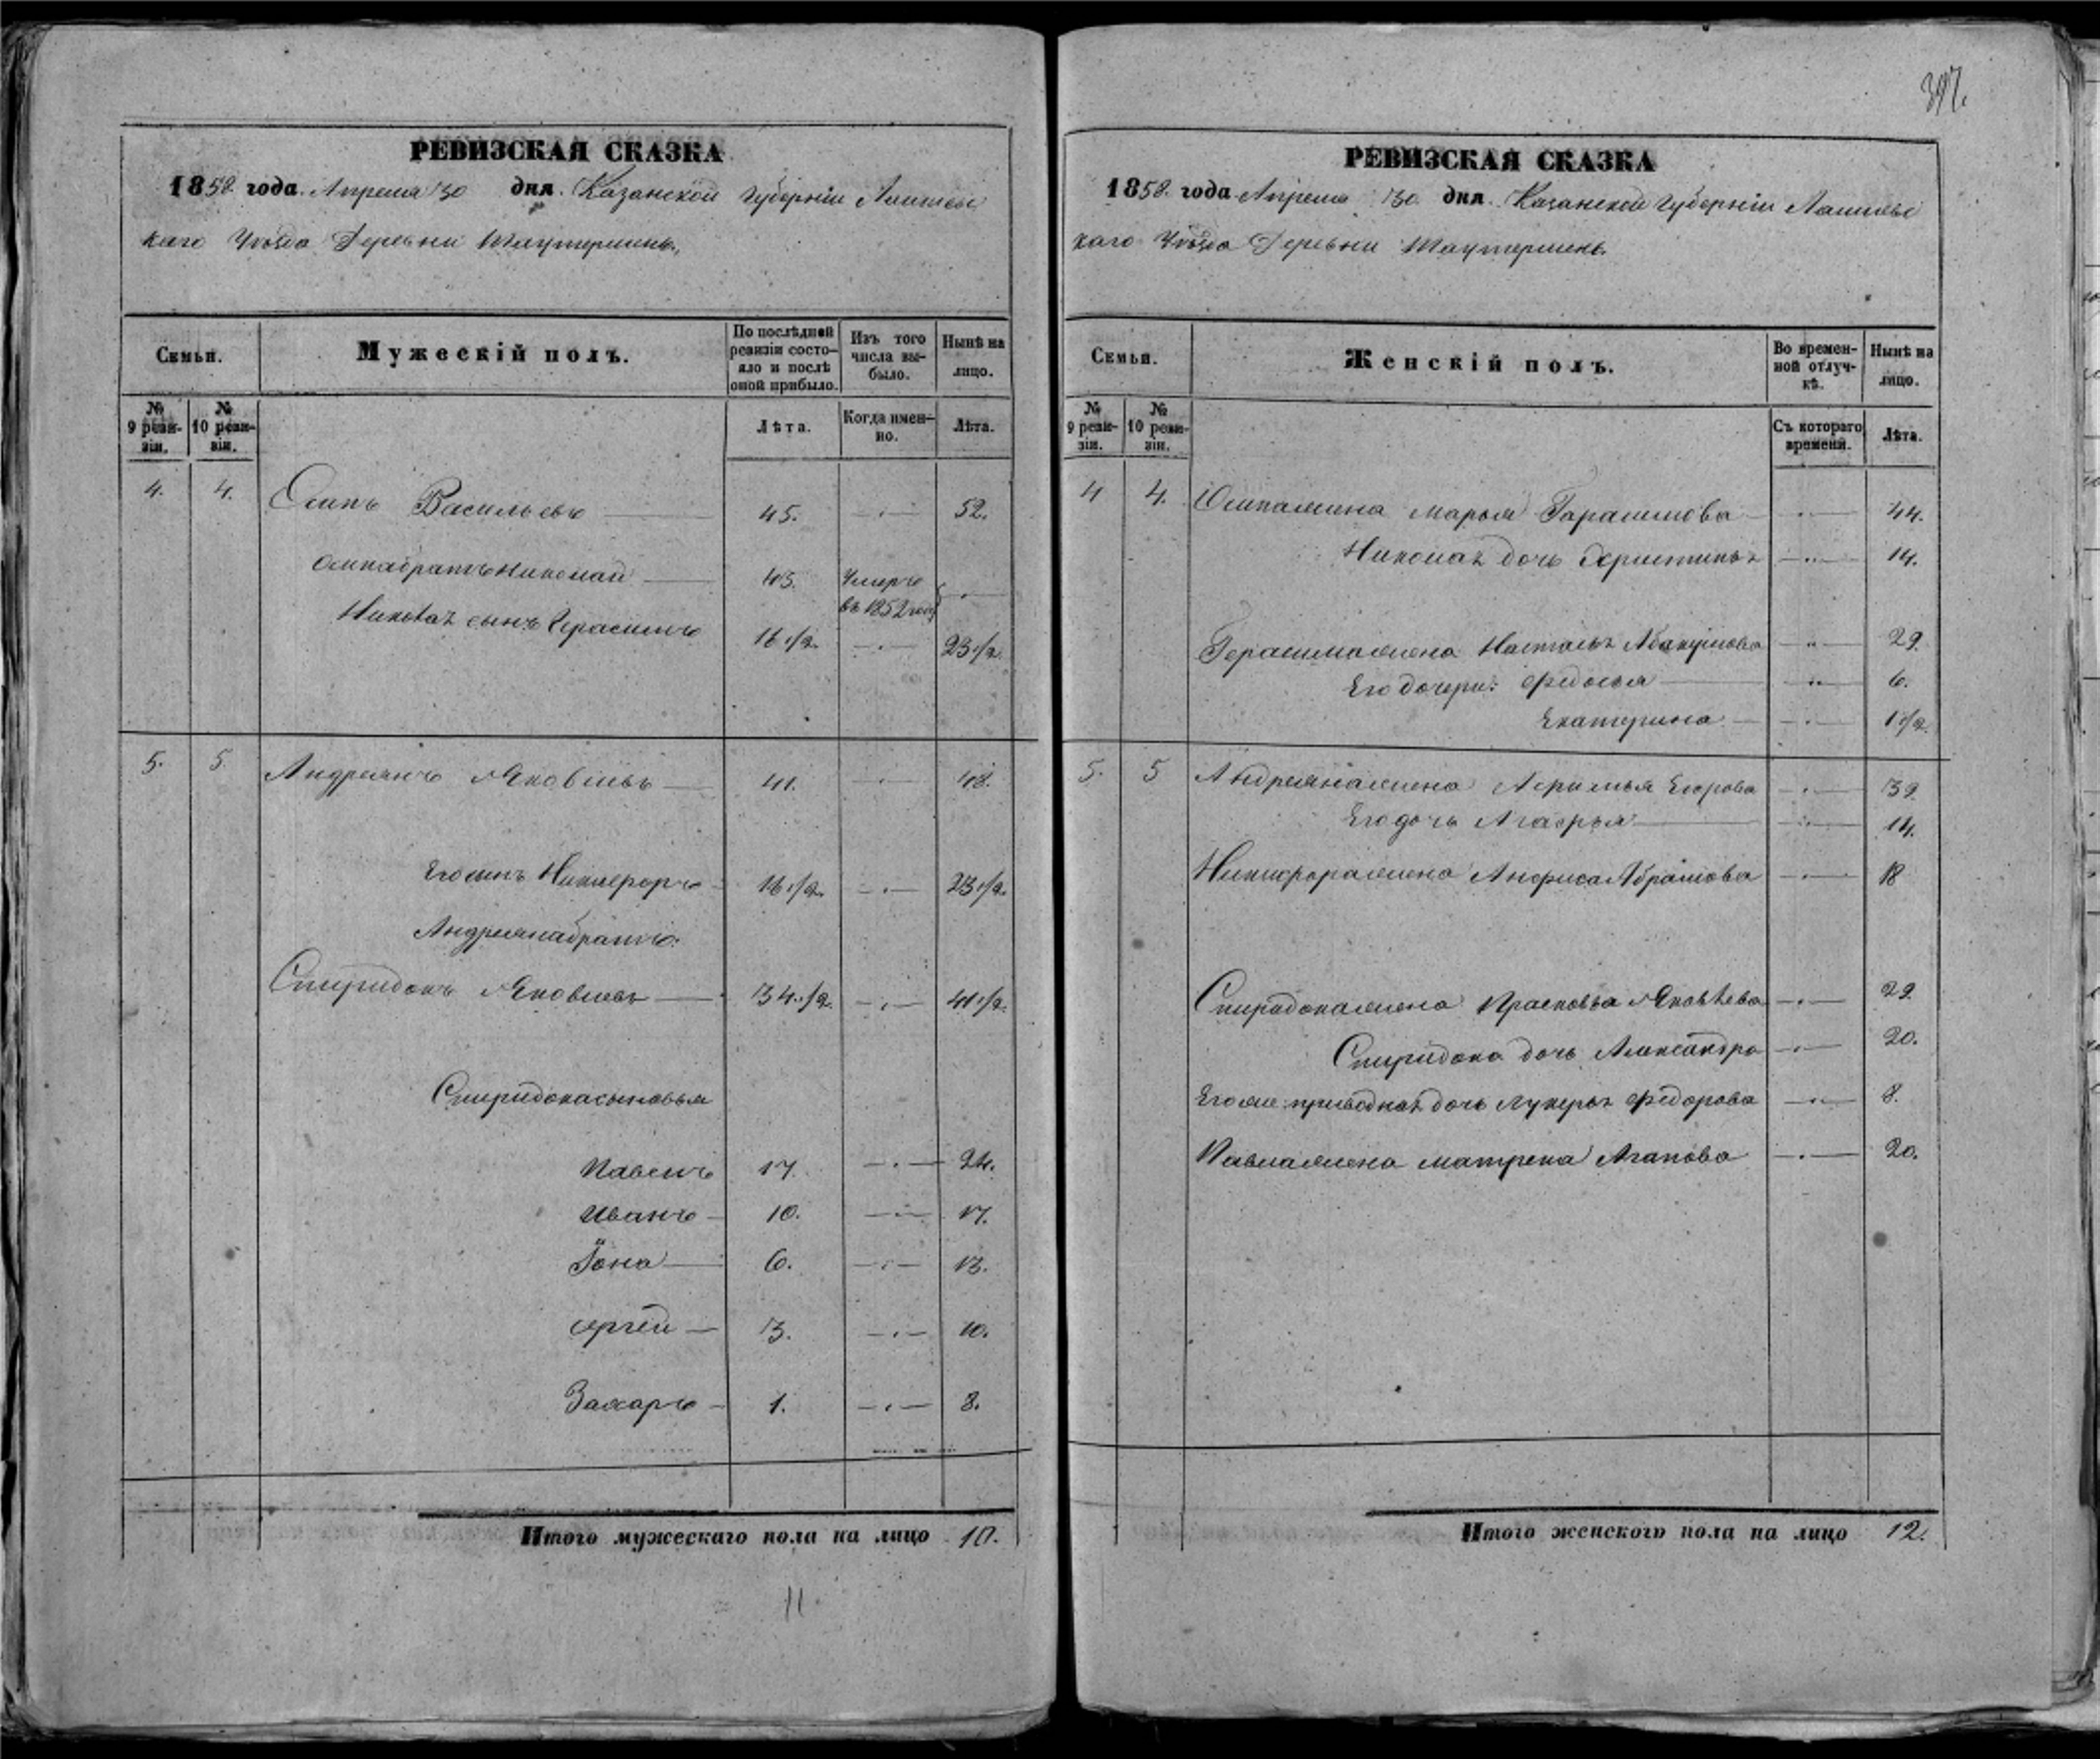 397.
РЕВИЗСКАЯ СКАЗКА
1858 года Апреля 30 дня Казанской Губерніи Лаишевс
каго Уѣзда Деревни
Семьи.
Мужескій полъ.
По послѣдней ревизіи состо-яло и послѣ оной прибыло.
Изъ того числа вы-было.
Нынѣ на лицо.
№ 9 реви-зіи.
№ 10 реви-зіи.
Лѣта.
Когда имен-но.
Лѣта.
4. 4. Осипъ Васильевъ 45. 52.
Осипа братъ Николай 43. Умеръ въ 1852 году
Николая сынъ Герасимъ 16 1/2 23 1/2
5. 5. Андреянъ Яковлевъ 41. 48.
Его сынъ Никифоръ 16 1/2 23 1/2
Андреяна братъ:
Спиридонъ Яковлевъ 34 1/2 41 1/2
Спиридона сыновья
Павелъ 17. 24.
Иванъ 10. 17.
Іона 6. 13.
Сергей 3. 10.
Захаръ 1. 8.
Итого мужескаго пола на лицо 10.
11
РЕВИЗСКАЯ СКАЗКА
1858 года Апреля 30 дня Казанской Губерніи Лаишевс
каго Уѣзда Деревни
Семьи.
Женскій полъ.
Во времен-ной отлуч-кѣ.
Нынѣ на лицо.
№ 9 реви-зіи.
№ 10 реви-зіи.
Съ котораго времени.
Лѣта.
4 4. Осипа жена Марья Гарасимова 44.
Николая дочь Христинья 14.
Герасима жена Настасья Абакумова 29.
Его дочери: Федосья 6.
Екатерина 1 1/2
5. 5 Андреяна жена Афимья Егорова 39.
Его дочь Агафья 14.
Никифора жена Анфиса Абрамова 18
Спиридона жена Прасковья Яковлева 29.
Спиридона дочь Александра 20.
Его же приводная дочь Лукерья Федорова 8.
Павла жена Матрена Агапова 20.
Итого женского пола на лицо 12.